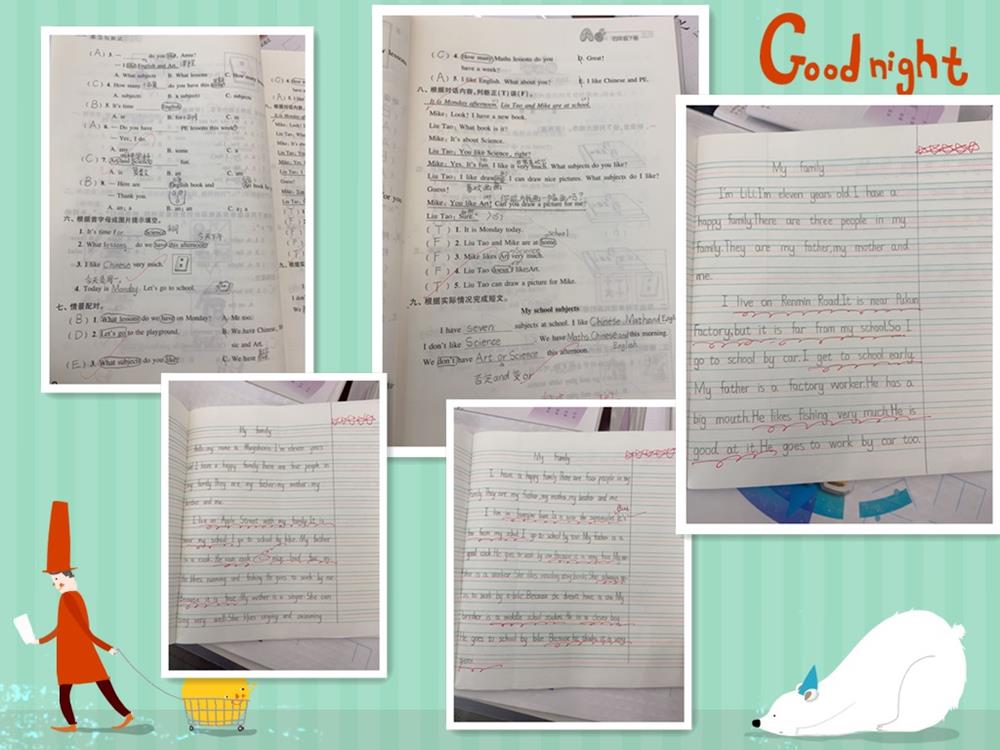 Good night
(A) 3. — do you like, Anne?
— I like English and Art. 课程
A. What subjects B. What lessons C. How many
(C) 4. How many do you have this
A. subject B. a subject C. subjects
(B) 5. It's time English.
A. at B. for C. to
(A) 6. — Do you have PE lessons this week?
— Yes, I do.
A. any B. some C. a
(C) 7. fun.
A. is B. am C. are
(B) 8. — Here are English book and Art book for
— Thank you.
A. an; a B. an; an C. a; a
六、根据首字母或图片提示填空。
1. It's time for Science.
2. What lessons do we have this afternoon?
3. I like Chinese very much.
今天是周一
4. Today is Monday. Let's go to school.
七、情景配对。
(B) 1. What lessons do we have on Monday? A. Me too.
(D) 2. Let's go to the playground. B. We have Chinese,
sic and Art.
(E) 3. What subjects do you like? C. We have
(C) 4. How many Maths lessons do you D. Great!
have a week?
(A) 5. I like English. What about you? E. I like Chinese and PE.
八、根据对话内容,判断正(T)误(F)。
It is Monday afternoon. Liu Tao and Mike are at school.
Mike: Look! I have a new book.
Liu Tao: What book is it?
Mike: It's about Science.
Liu Tao: You like Science, right?
Mike: Yes. It's fun. I like it very much. What subjects do you like?
Liu Tao: I like drawing. I can draw nice pictures. What subjects do I like?
Guess! 喜欢画画
Mike: You like Art! Can you draw a picture for me?
Liu Tao: Sure.
(T) 1. It is Monday today.
school
(F) 2. Liu Tao and Mike are at home.
Science
(F) 3. Mike likes Art very much.
(F) 4. Liu Tao doesn't like Art.
(T) 5. Liu Tao can draw a picture for Mike.
九、根据实际情况完成短文。
My school subjects
I have seven subjects at school. I like Chinese, Maths and Engl
I don't like Science. We have Maths, Chinese and this morning.
English
We don't have Art or Science this afternoon.
否定 and 变 or
My family
I'm LiLi.I'm eleven years old.I have a
happy family.There are three people in my
family.They are my father,my mother and
me.
I live on Renmin Road.It is near
Factory,but it is far from my school.So I
go to school by car.I get to school early.
My father is a factory worker.He has a
big mouth.He likes fishing very much.He is
good at it.He goes to work by car too.
My family
Hello,my name is I'm eleven years
old.I have a happy family.There are five people in
my family.They are my father,my mother,my
and me.
I live on Apple Street with my family.It is
near my school.I go to school by bike. My father
is a cook. He can cook
He likes running and fishing.He goes to work by
Because it is My mother is a singer. She can
sing very well.She likes singing and swimming.
My family
I have a happy family.There are four people in my
family.They are my father,my mother,my brother and me.
I live in It is near the supermarket.It's
far from my school.I go to school by car.My father is a
good cook.He goes to work by
She is a worker. She likes reading story books.She always
to work by e-bike.Because she doesn't have a car.My
brother is a middle school student.He is a clever boy.
He goes to school by bike. Because his